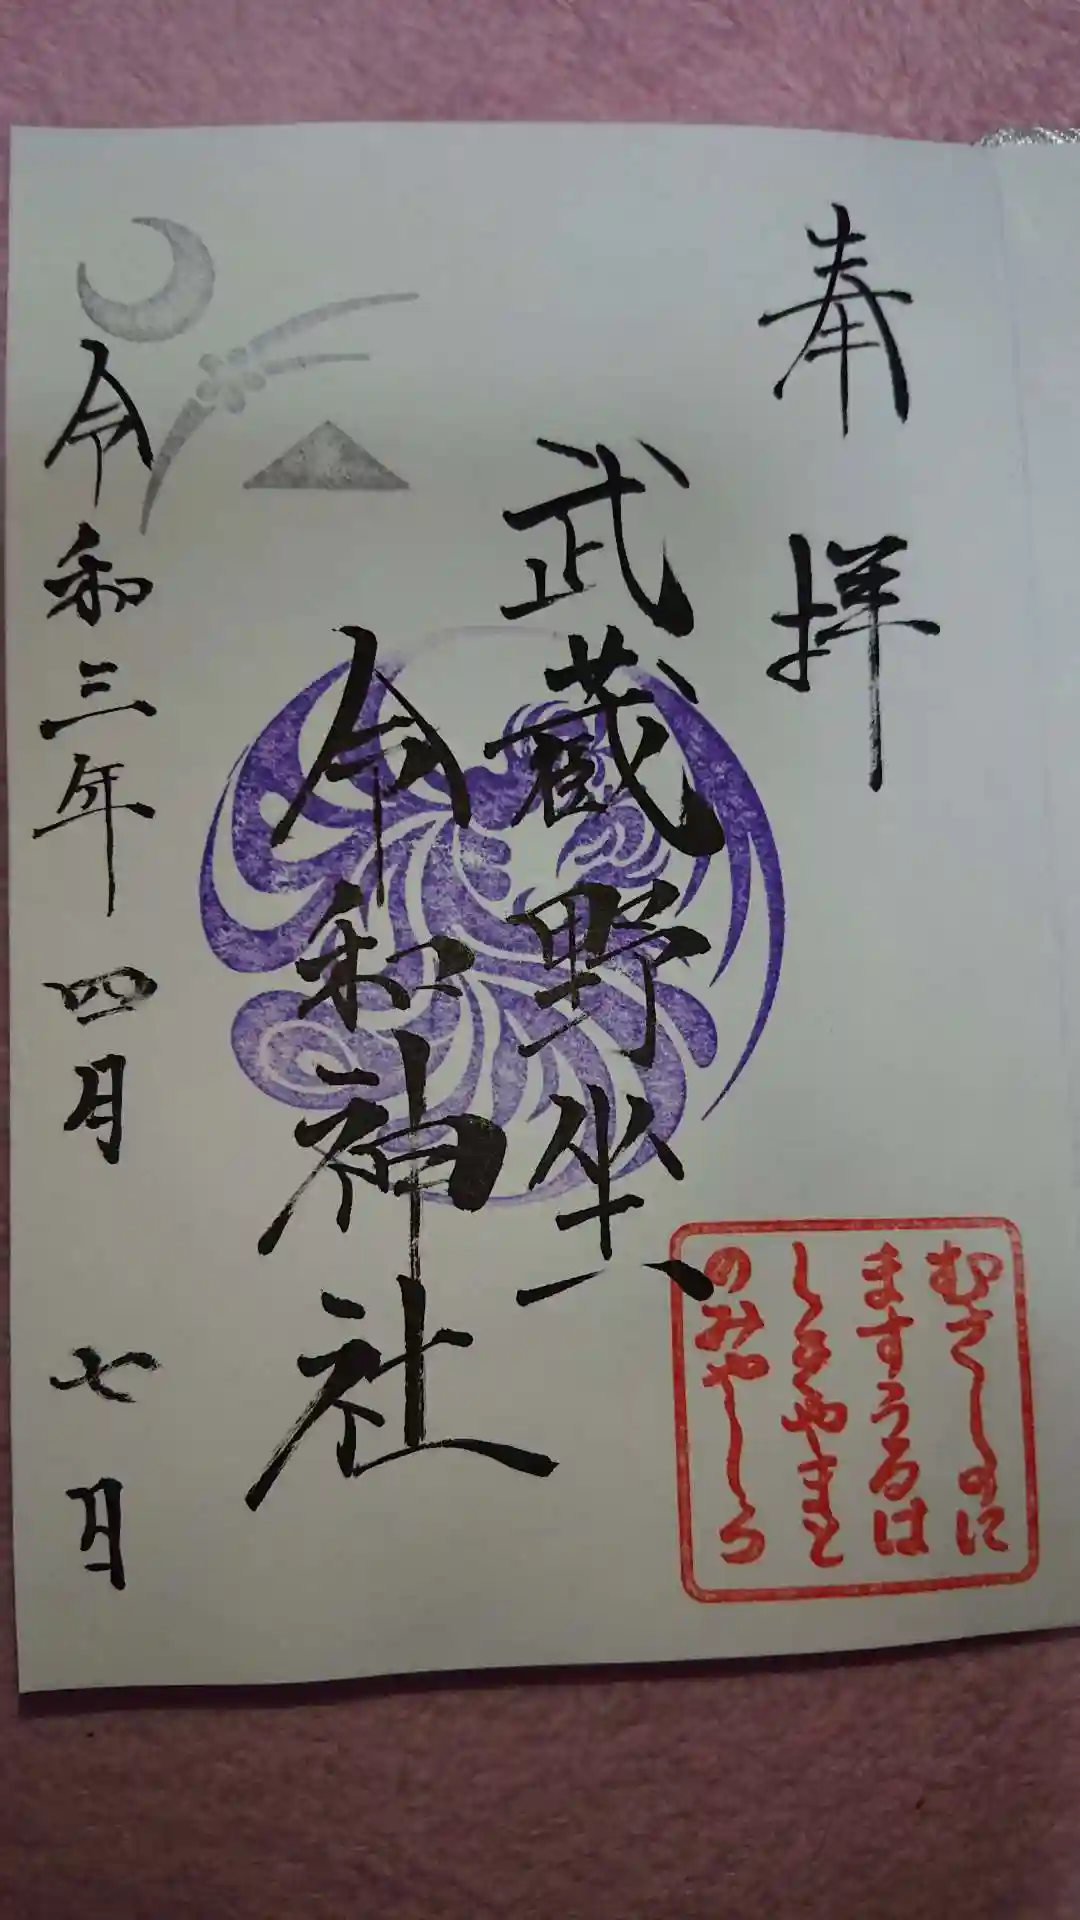 奉拝
武蔵野坐
令和神社
令和三年 四月 七日
むさしのに
ますうるは
しきやまと
のみやしろ